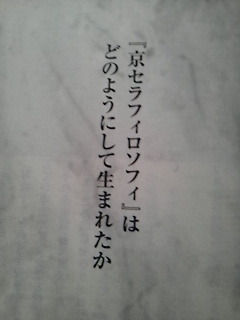 『京セラフィロソフィ』は
どのようにして生まれたか